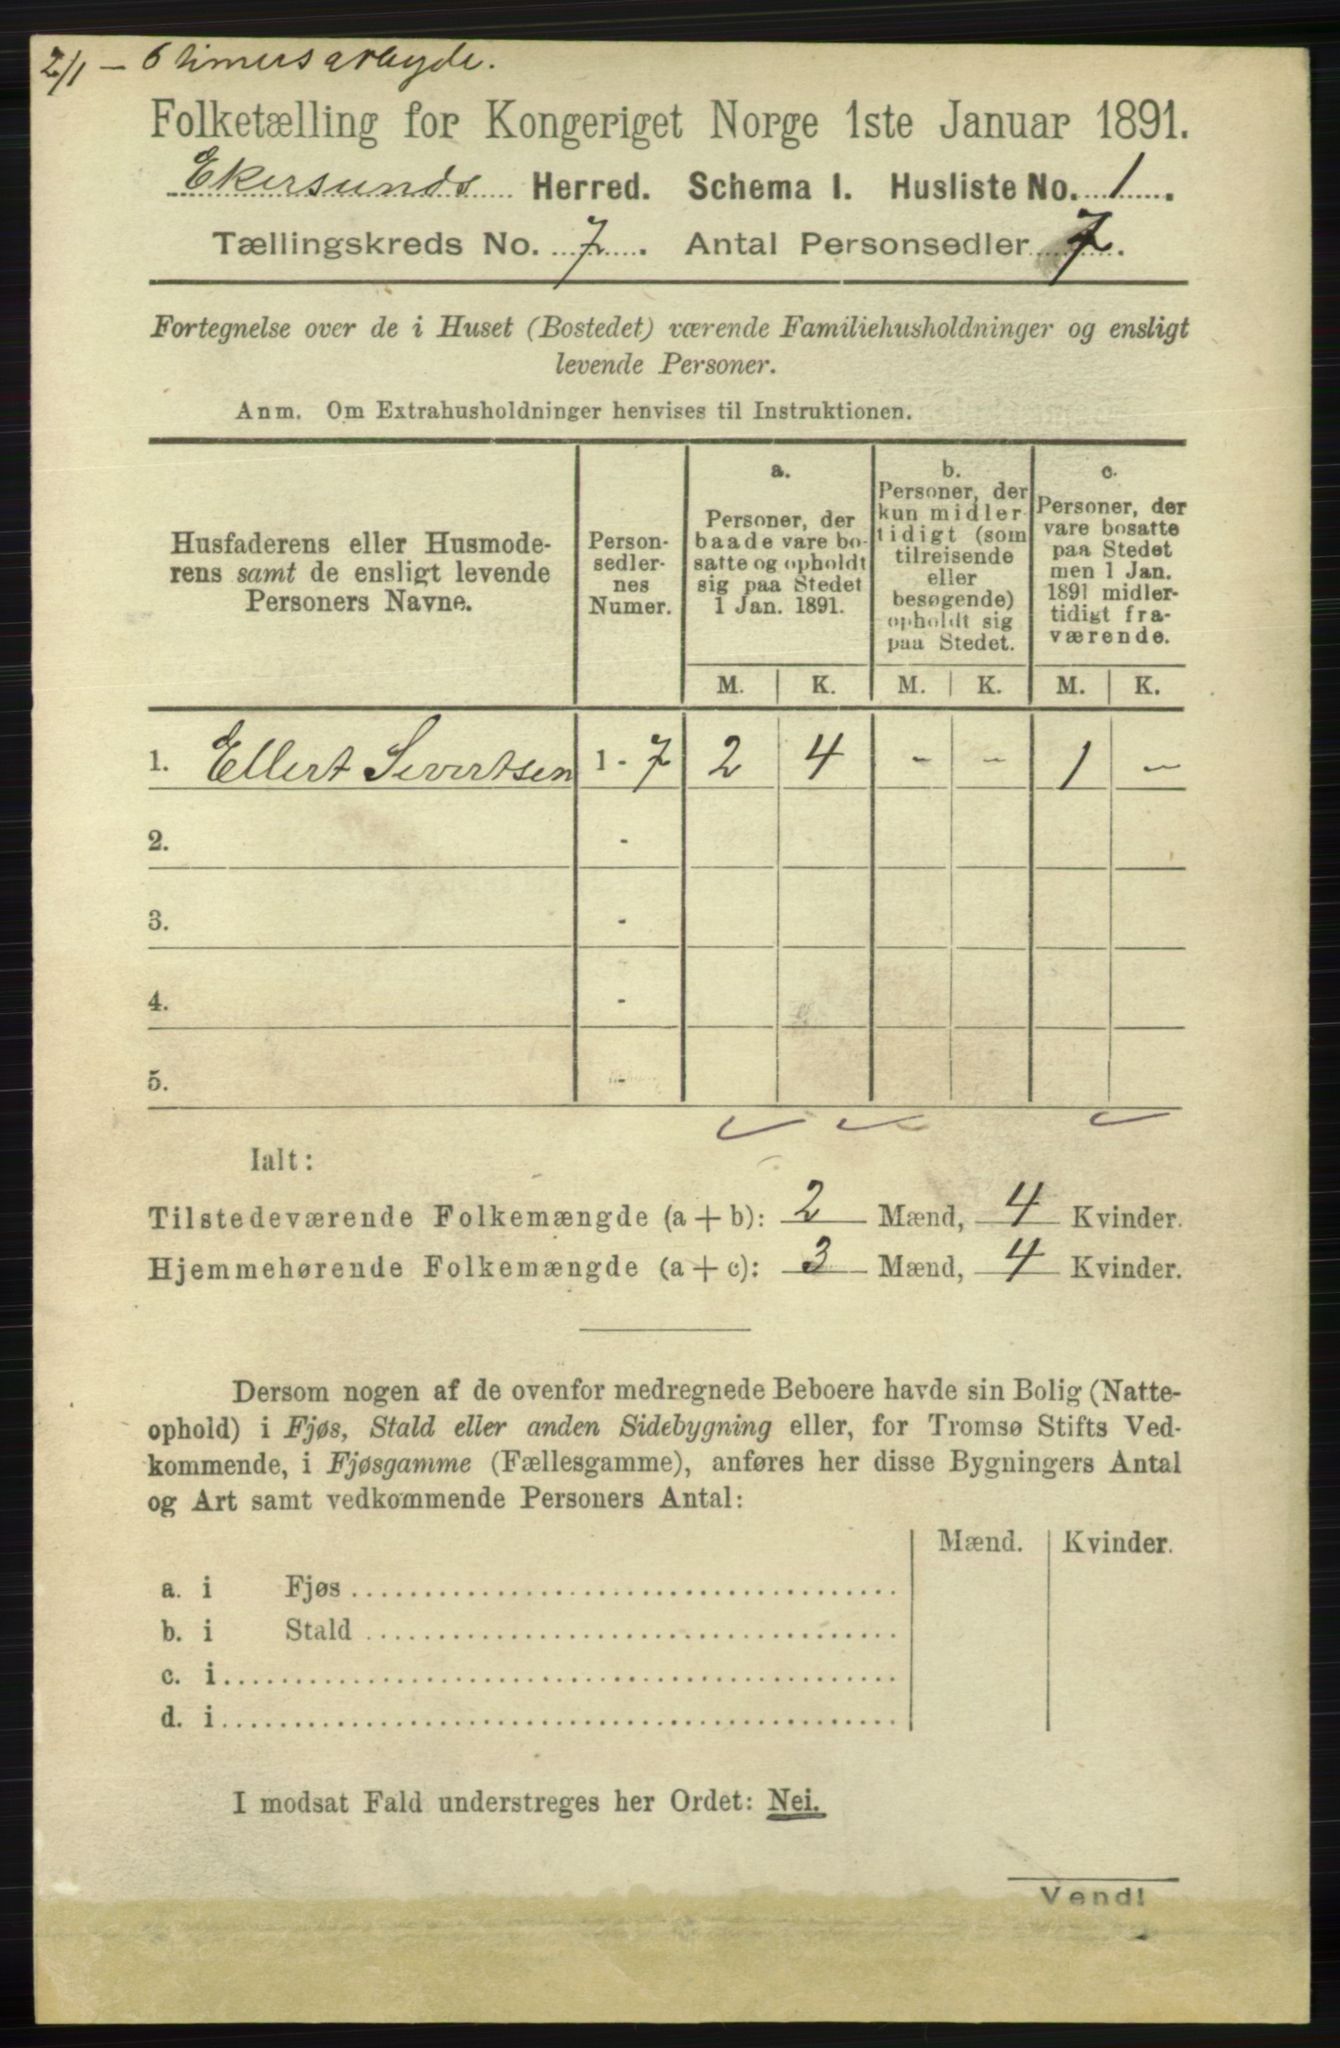 2/1 – 6 timers arbeyde.
Folketælling for Kongeriget Norge 1ste Januar 1891.
Ekersunds Herred. Schema I. Husliste No. 1.
Tællingskreds No. 7. Antal Personsedler 7.
Fortegnelse over de i Huset (Bostedet) værende Familiehusholdninger og ensligt
levende Personer.
Anm. Om Extrahusholdninger henvises til Instruktionen.
Husfaderens eller Husmode-
rens samt de ensligt levende
Personers Navne.
Person-
sedler-
nes
Numer.
a.
Personer, der
baade vare bo-
satte og opholdt
sig paa Stedet
1 Jan. 1891.
b.
Personer, der
kun midler-
tidigt (som
tilreisende
eller
besøgende)
opholdt sig
paa Stedet.
c.
Personer, der
vare bosatte
paa Stedet
men 1 Jan.
1891 midler-
tidigt fra-
værende.
M. K. M. K. M. K.
1. Ellert Sivertsen 1 - 7 2 4 - - 1 -
2. -
3. -
4. -
5. -
Ialt:
Tilstedeværende Folkemængde (a + b): 2 Mænd, 4 Kvinder.
Hjemmehørende Folkemængde (a + c): 3 Mænd, 4 Kvinder.
Dersom nogen af de ovenfor medregnede Beboere havde sin Bolig (Natte-
ophold) i Fjøs, Stald eller anden Sidebygning eller, for Tromsø Stifts Ved-
kommende, i Fjøsgamme (Fællesgamme), anføres her disse Bygningers Antal
og Art samt vedkommende Personers Antal:
Mænd. Kvinder.
a. i Fjøs
b. i Stald
c. i
d. i
I modsat Fald understreges her Ordet: Nei.
Vend!